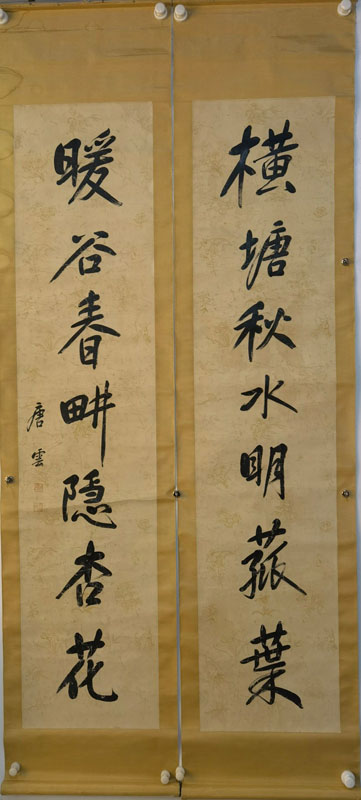 橫塘秋水明菰葉
暖谷春畊隱杏花
唐雲